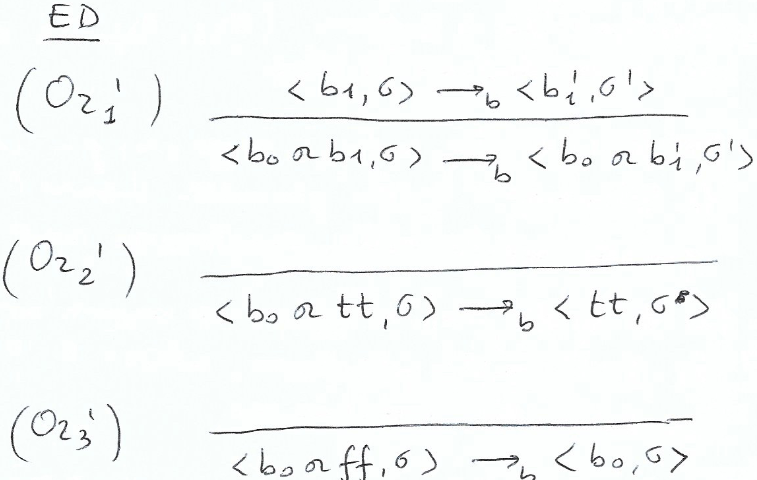 ED
(Or₁') <b₁,σ> →b <b₁',σ'>
<b₀ or b₁,σ> →b <b₀ or b₁',σ'>
(Or₂')
<b₀ or tt,σ> →b <tt,σ>
(Or₃')
<b₀ or ff,σ> →b <b₀,σ>